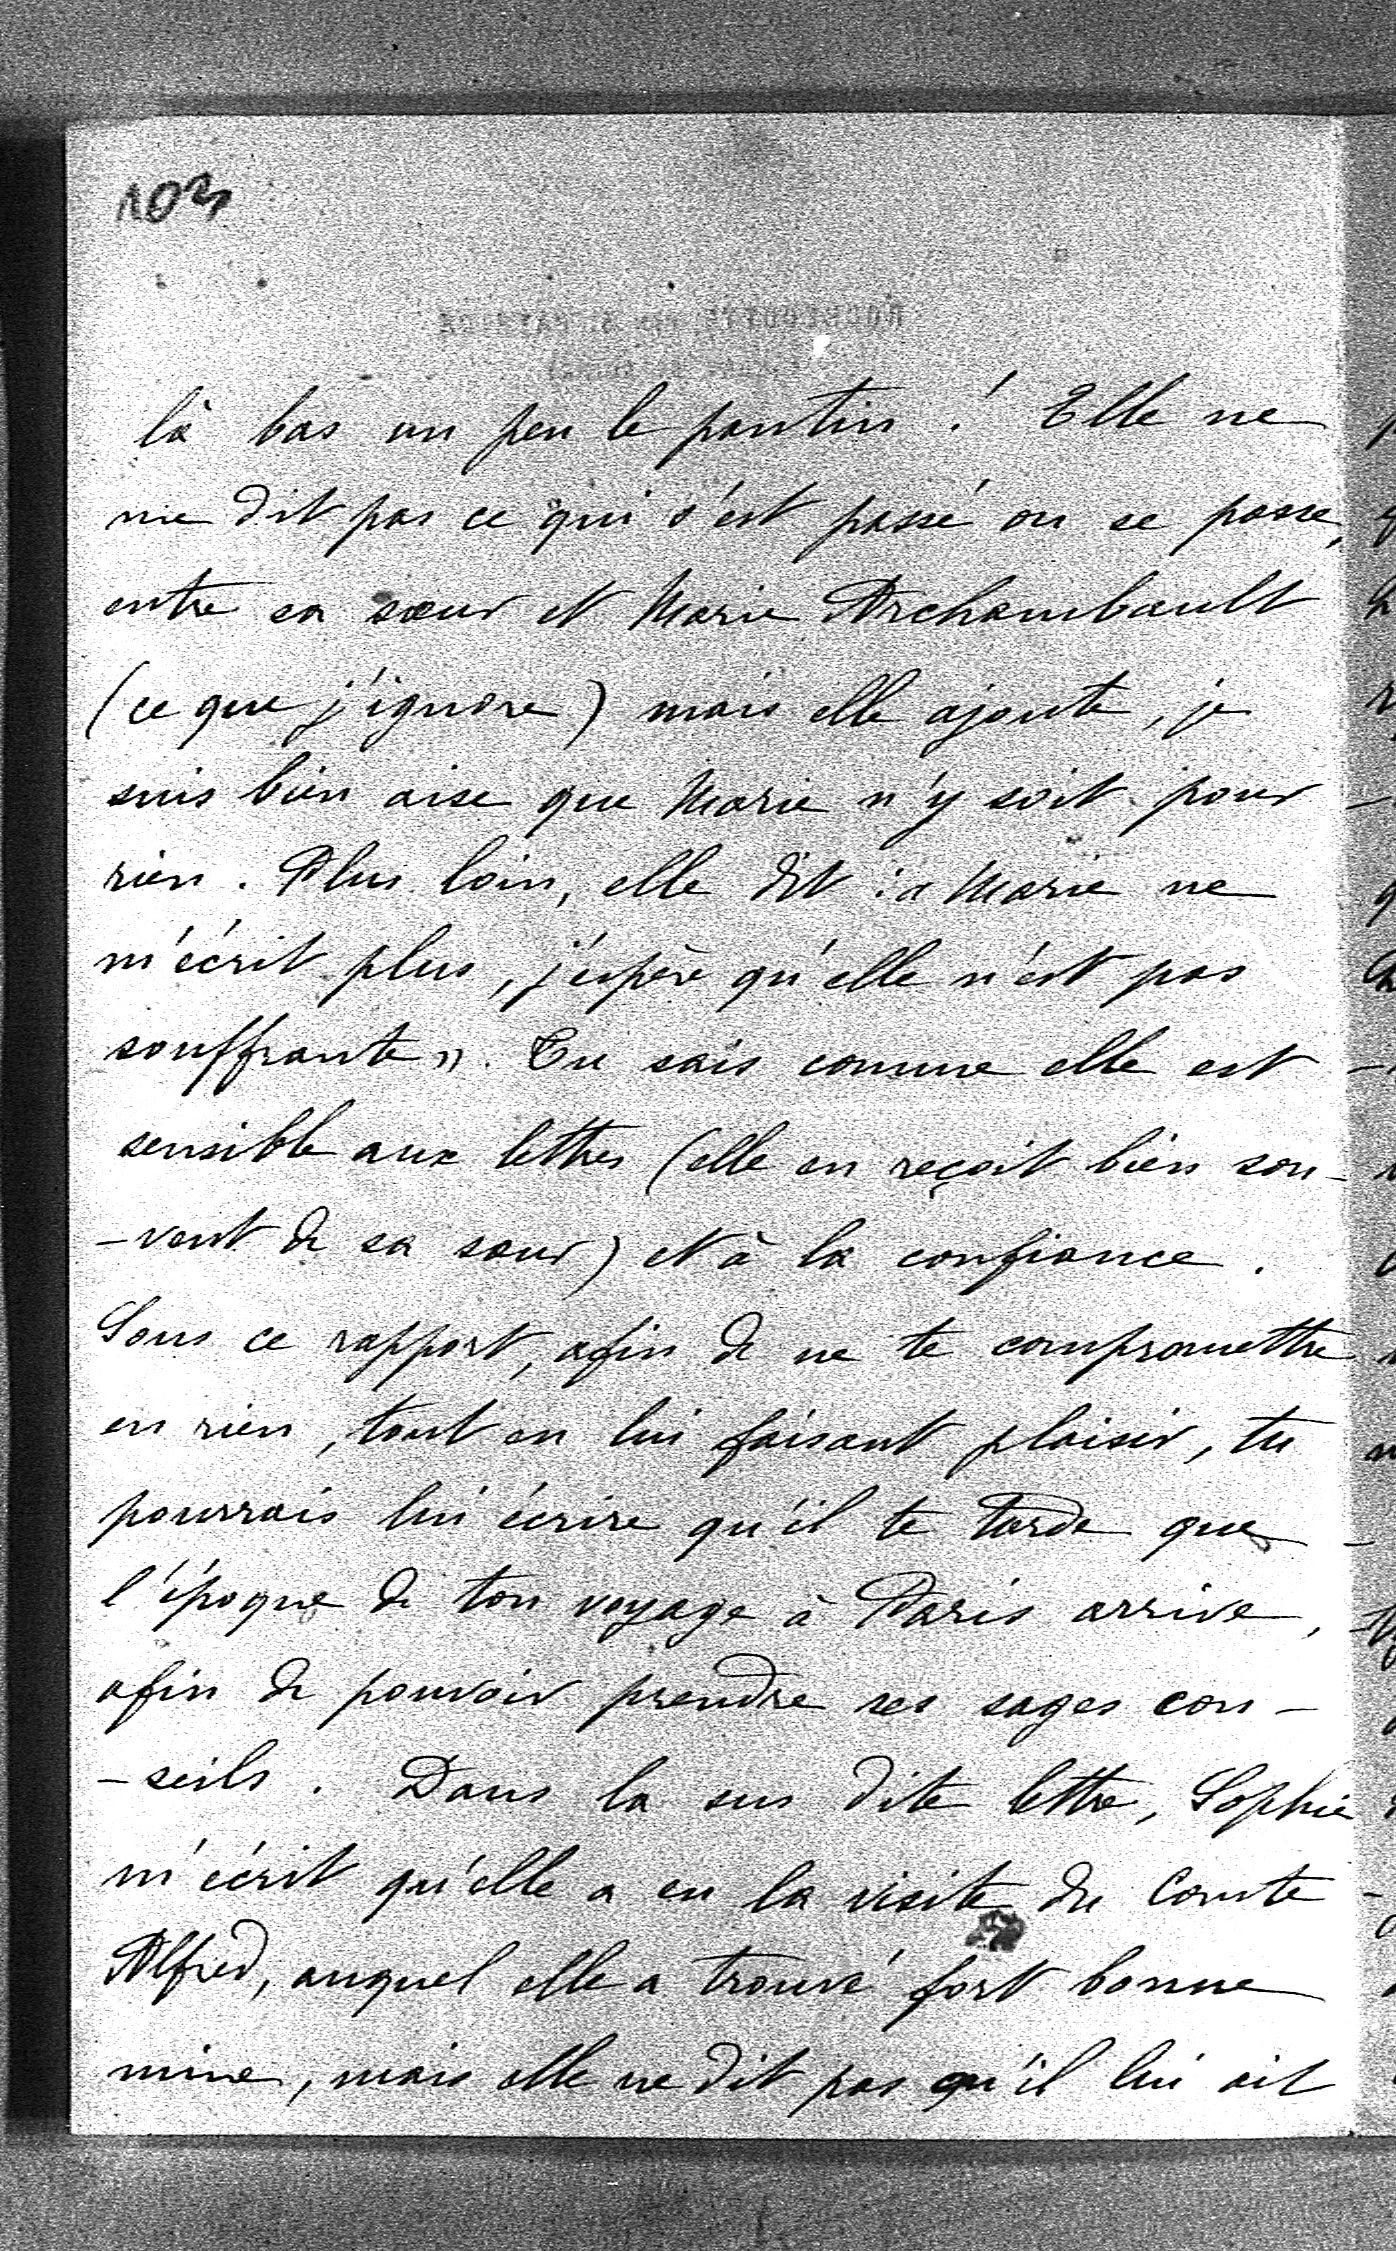 103
là bas un peu le pantin ! Elle ne
me dit pas ce qui s'est passé ou se passe,
entre sa sœur et Marie Archambault
(ce que j'ignore) mais elle ajoute, je
suis bien aise que Marie n'y soit pour
rien. Plus loin, elle dit : « Marie ne
m'écrit plus, j'espère qu'elle n'est pas
souffrante ». Tu sais comme elle est
sensible aux lettres (elle en reçoit bien sou-
-vent de sa sœur) et à la confiance.
Sous ce rapport, afin de ne te compromettre
en rien, tout en lui faisant plaisir, tu
pourrais lui écrire qu'il te tarde que
l'époque de ton voyage à Paris arrive,
afin de pouvoir prendre ses sages con-
-seils. Dans la sus dite lettre, Sophie
m'écrit qu'elle a eu la visite du Comte
Alfred, auquel elle a trouvé fort bonne
mine, mais elle ne dit pas qu'il lui ait